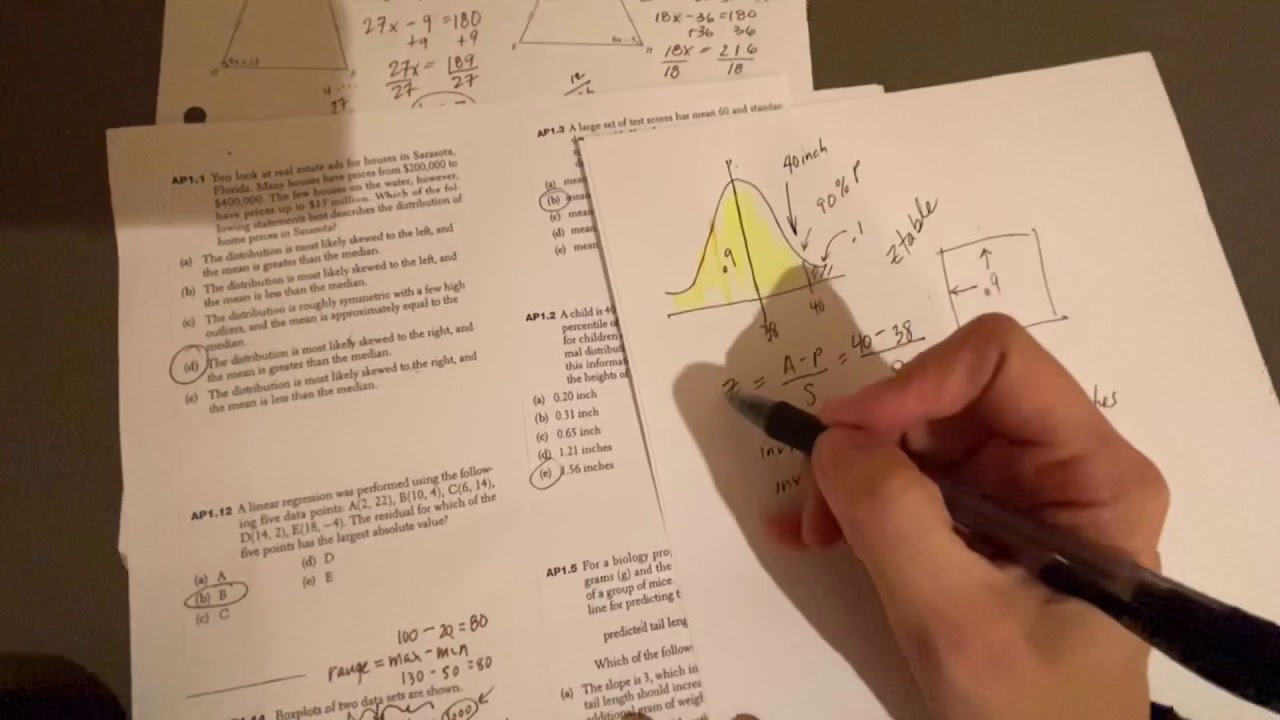 27x - 9 = 180
+9 +9
27x = 189
27 27
18x - 36 = 180
+36 36
18x = 216
18 18
AP1.1 You look at real estate ads for houses in Sarasota,
Florida. Many houses have prices from $200,000 to
$400,000. The few houses on the water, however,
have prices up to $15 million. Which of the fol-
lowing statements best describes the distribution of
home prices in Sarasota?
(a) The distribution is most likely skewed to the left, and
the mean is greater than the median.
(b) The distribution is most likely skewed to the left, and
the mean is less than the median.
(c) The distribution is roughly symmetric with a few high
outliers, and the mean is approximately equal to the
median.
(d) The distribution is most likely skewed to the right, and
the mean is greater than the median.
(e) The distribution is most likely skewed to the right, and
the mean is less than the median.
AP1.12 A linear regression was performed using the follow-
ing five data points: A(2, 22), B(10, 4), C(6, 14),
D(14, 2), E(18, -4). The residual for which of the
five points has the largest absolute value?
(a) A
(b) B
(c) C
(d) D
(e) E
100 - 20 = 80
range = max - min
130 - 50 = 80
Boxplots of two data sets are shown.
AP1.3 A large set of test scores has mean 60 and standar
(a) mean
(b) mean
(c) mean
(d) mean
(e) mean
AP1.2 A child is 40
percentile o
for children
mal distribut
this informat
the heights of
(a) 0.20 inch
(b) 0.31 inch
(c) 0.65 inch
(d) 1.21 inches
(e) 1.56 inches
AP1.5 For a biology pro
grams (g) and the
of a group of mice
line for predicting t
predicted tail leng
Which of the follow
(a) The slope is 3, which in
tail length should increa
additional gram of weigh
40 inch
90% P
.1
.9
38
40
z table
.9
z = A - P = 40 - 38
S
inv
inv
hes